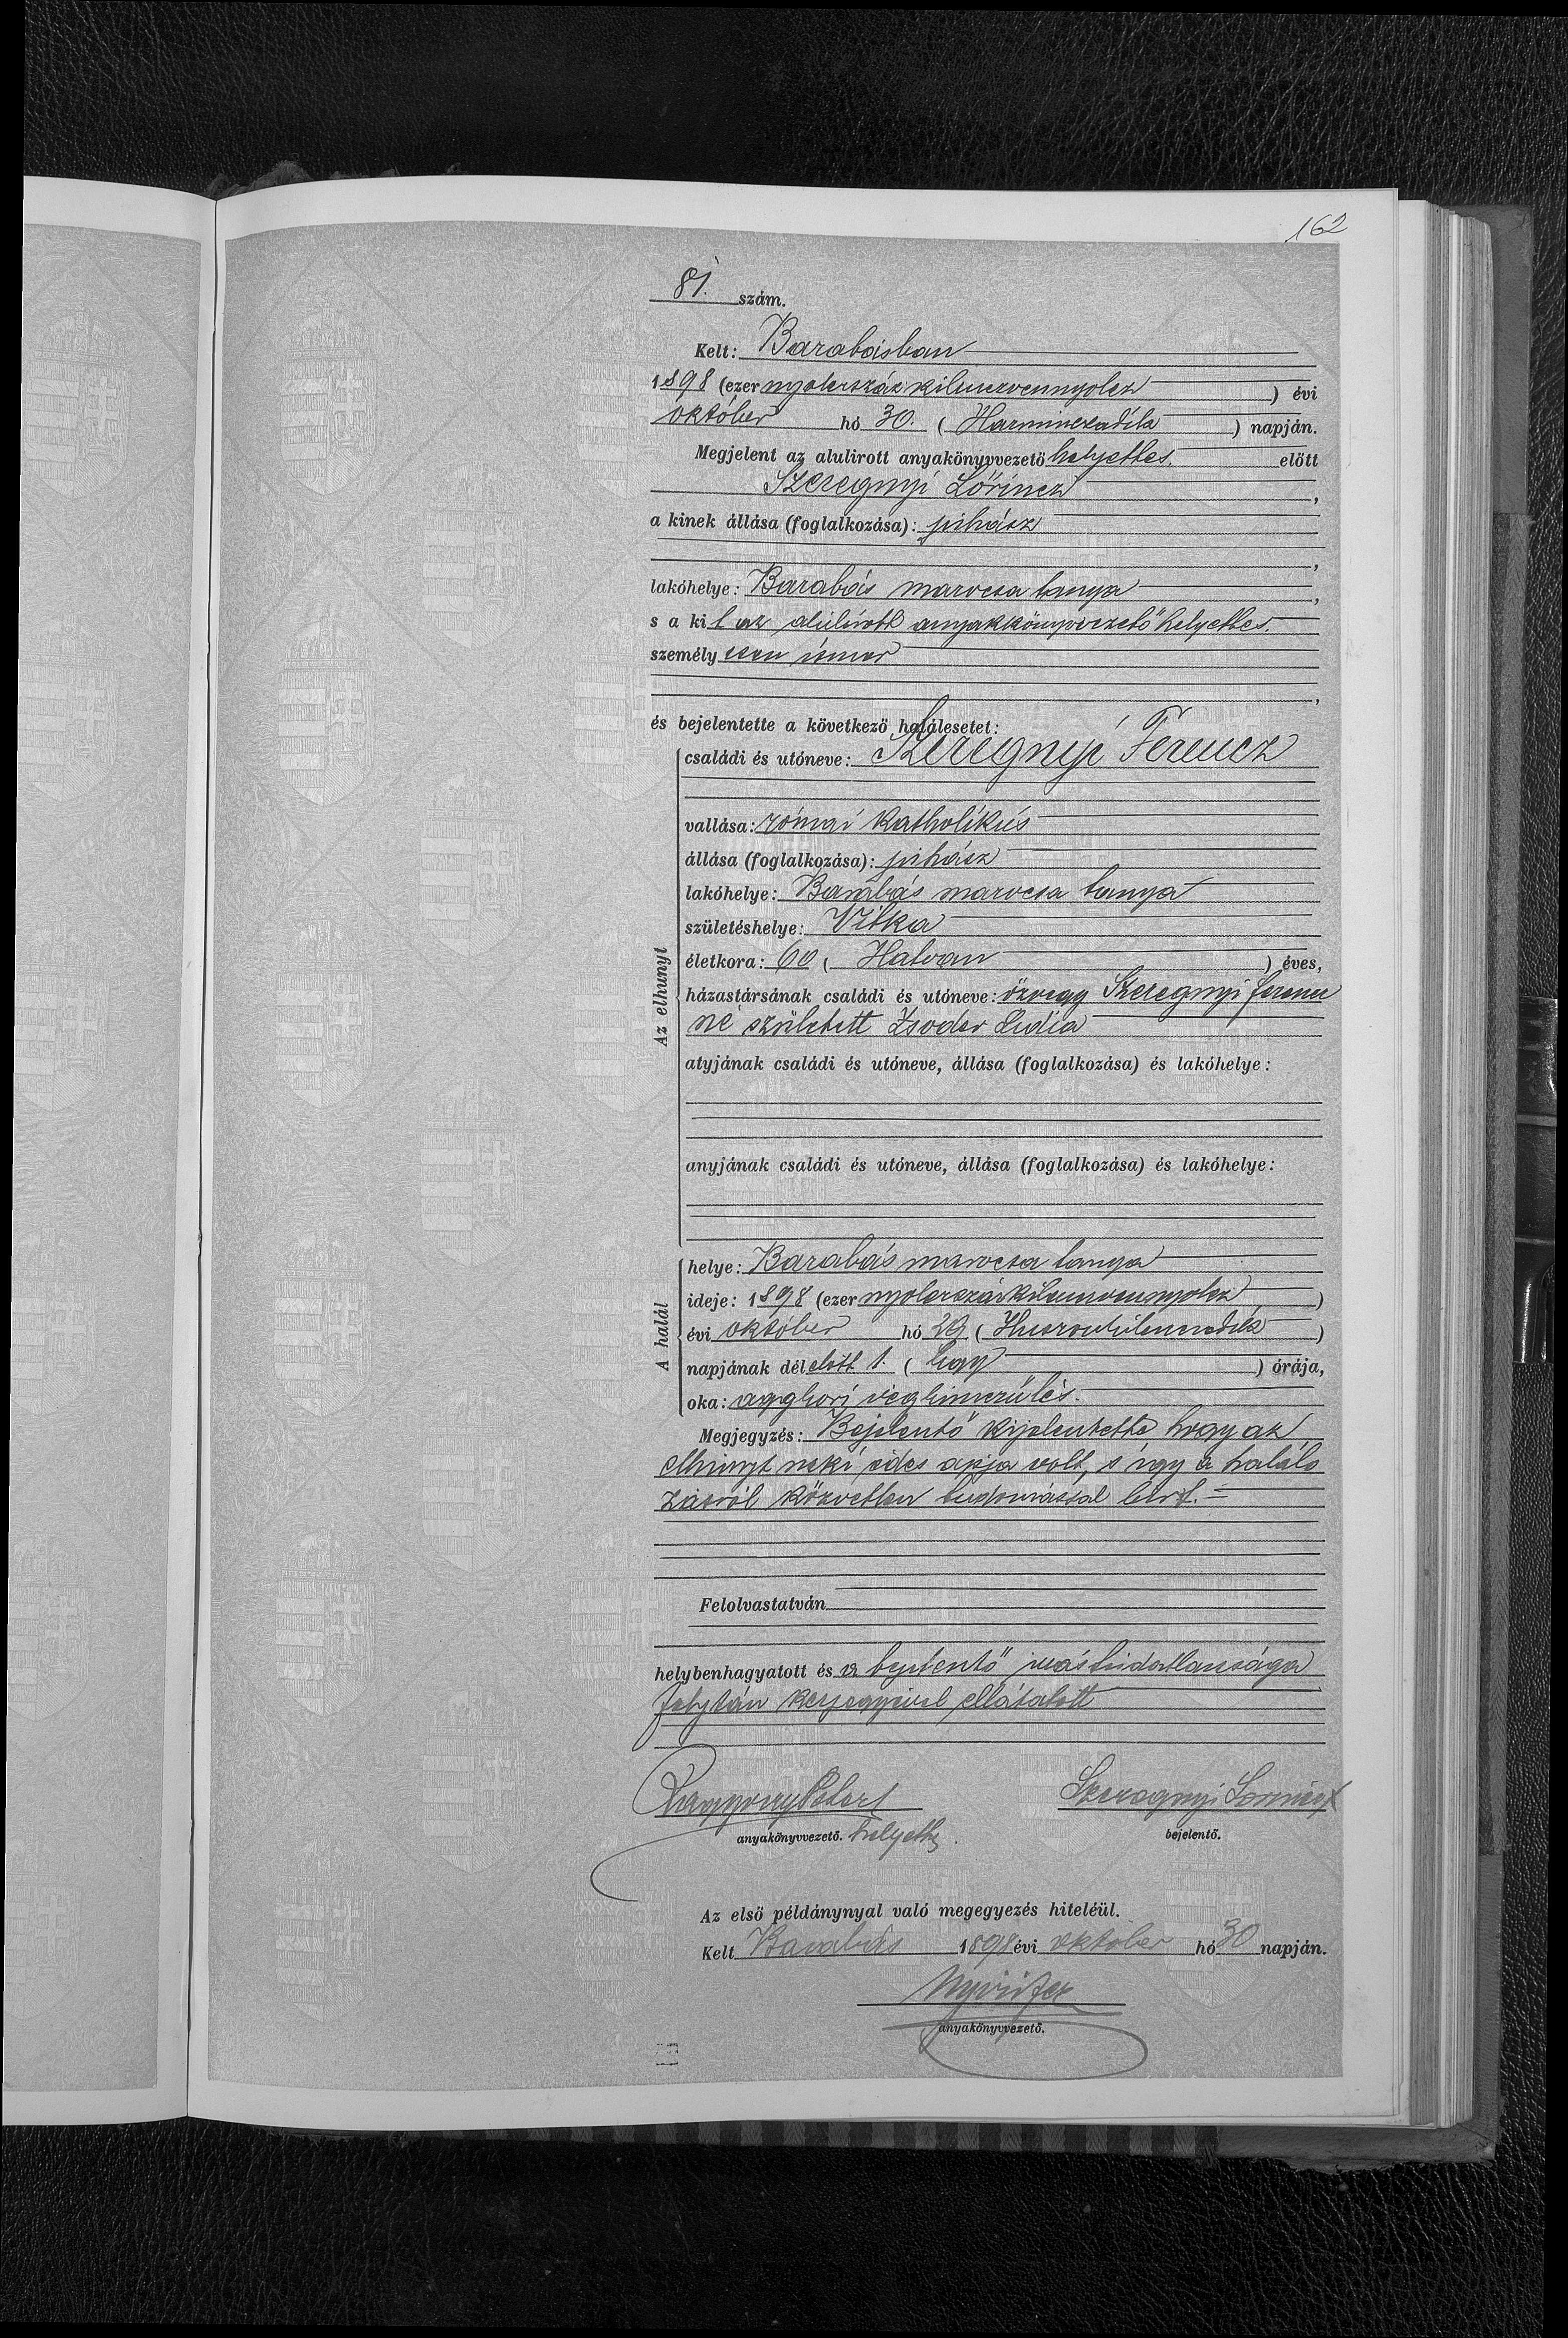 162
81. szám.
Kelt: Barabásban
1898 (ezer nyolczszáz kilenczvennyolcz) évi
október hó 30. (Harminczadik) napján.
Megjelent az alulirott anyakönyvvezető helyettes. előtt
Szeregnyi Lőrincz,
a kinek állása (foglalkozása): juhász
,
lakóhelye: Barabás marocsa tanya,
s a kit az alúlírott anyakkönyvvezető helyettes.
személyesen ismer
,
és bejelentette a következő halálesetet:
Az elhunyt
családi és utóneve: Szeregnyi Ferencz
vallása: római katholikús
állása (foglalkozása): juhász
lakóhelye: Barabás marocsa tanya
születéshelye: Vitka
életkora: 60 (Hatvan) éves,
házastársának családi és utóneve: özvegy Szeregnyi ferencz
né született Lidia
atyjának családi és utóneve, állása (foglalkozása) és lakóhelye:
anyjának családi és utóneve, állása (foglalkozása) és lakóhelye:
A halál
helye: Barabás marocsa tanya
ideje: 1898 (ezer nyolczszázkilenczvennyolcz)
évi október hó 29 (Huszonkilenczedik)
napjának délelőtt 1. (Eggy) órája,
oka: aggkori végkimerülés.
Megjegyzés: Bejelentő kijelentette, hogy az
elhunyt neki édes apja volt, s így a halálo
zásról közvetlen tudomással bírt.
Felolvastatván
helybenhagyatott és a bejelentő írástudatlansága
folytán kézjegyével ellátatott
anyakönyvvezető. helyettes.
Szeregnyi Lőrincz x
bejelentő.
Az első példánynyal való megegyezés hiteléül.
Kelt Barabás 1898 évi október hó 30 napján.
anyakönyvvezető.